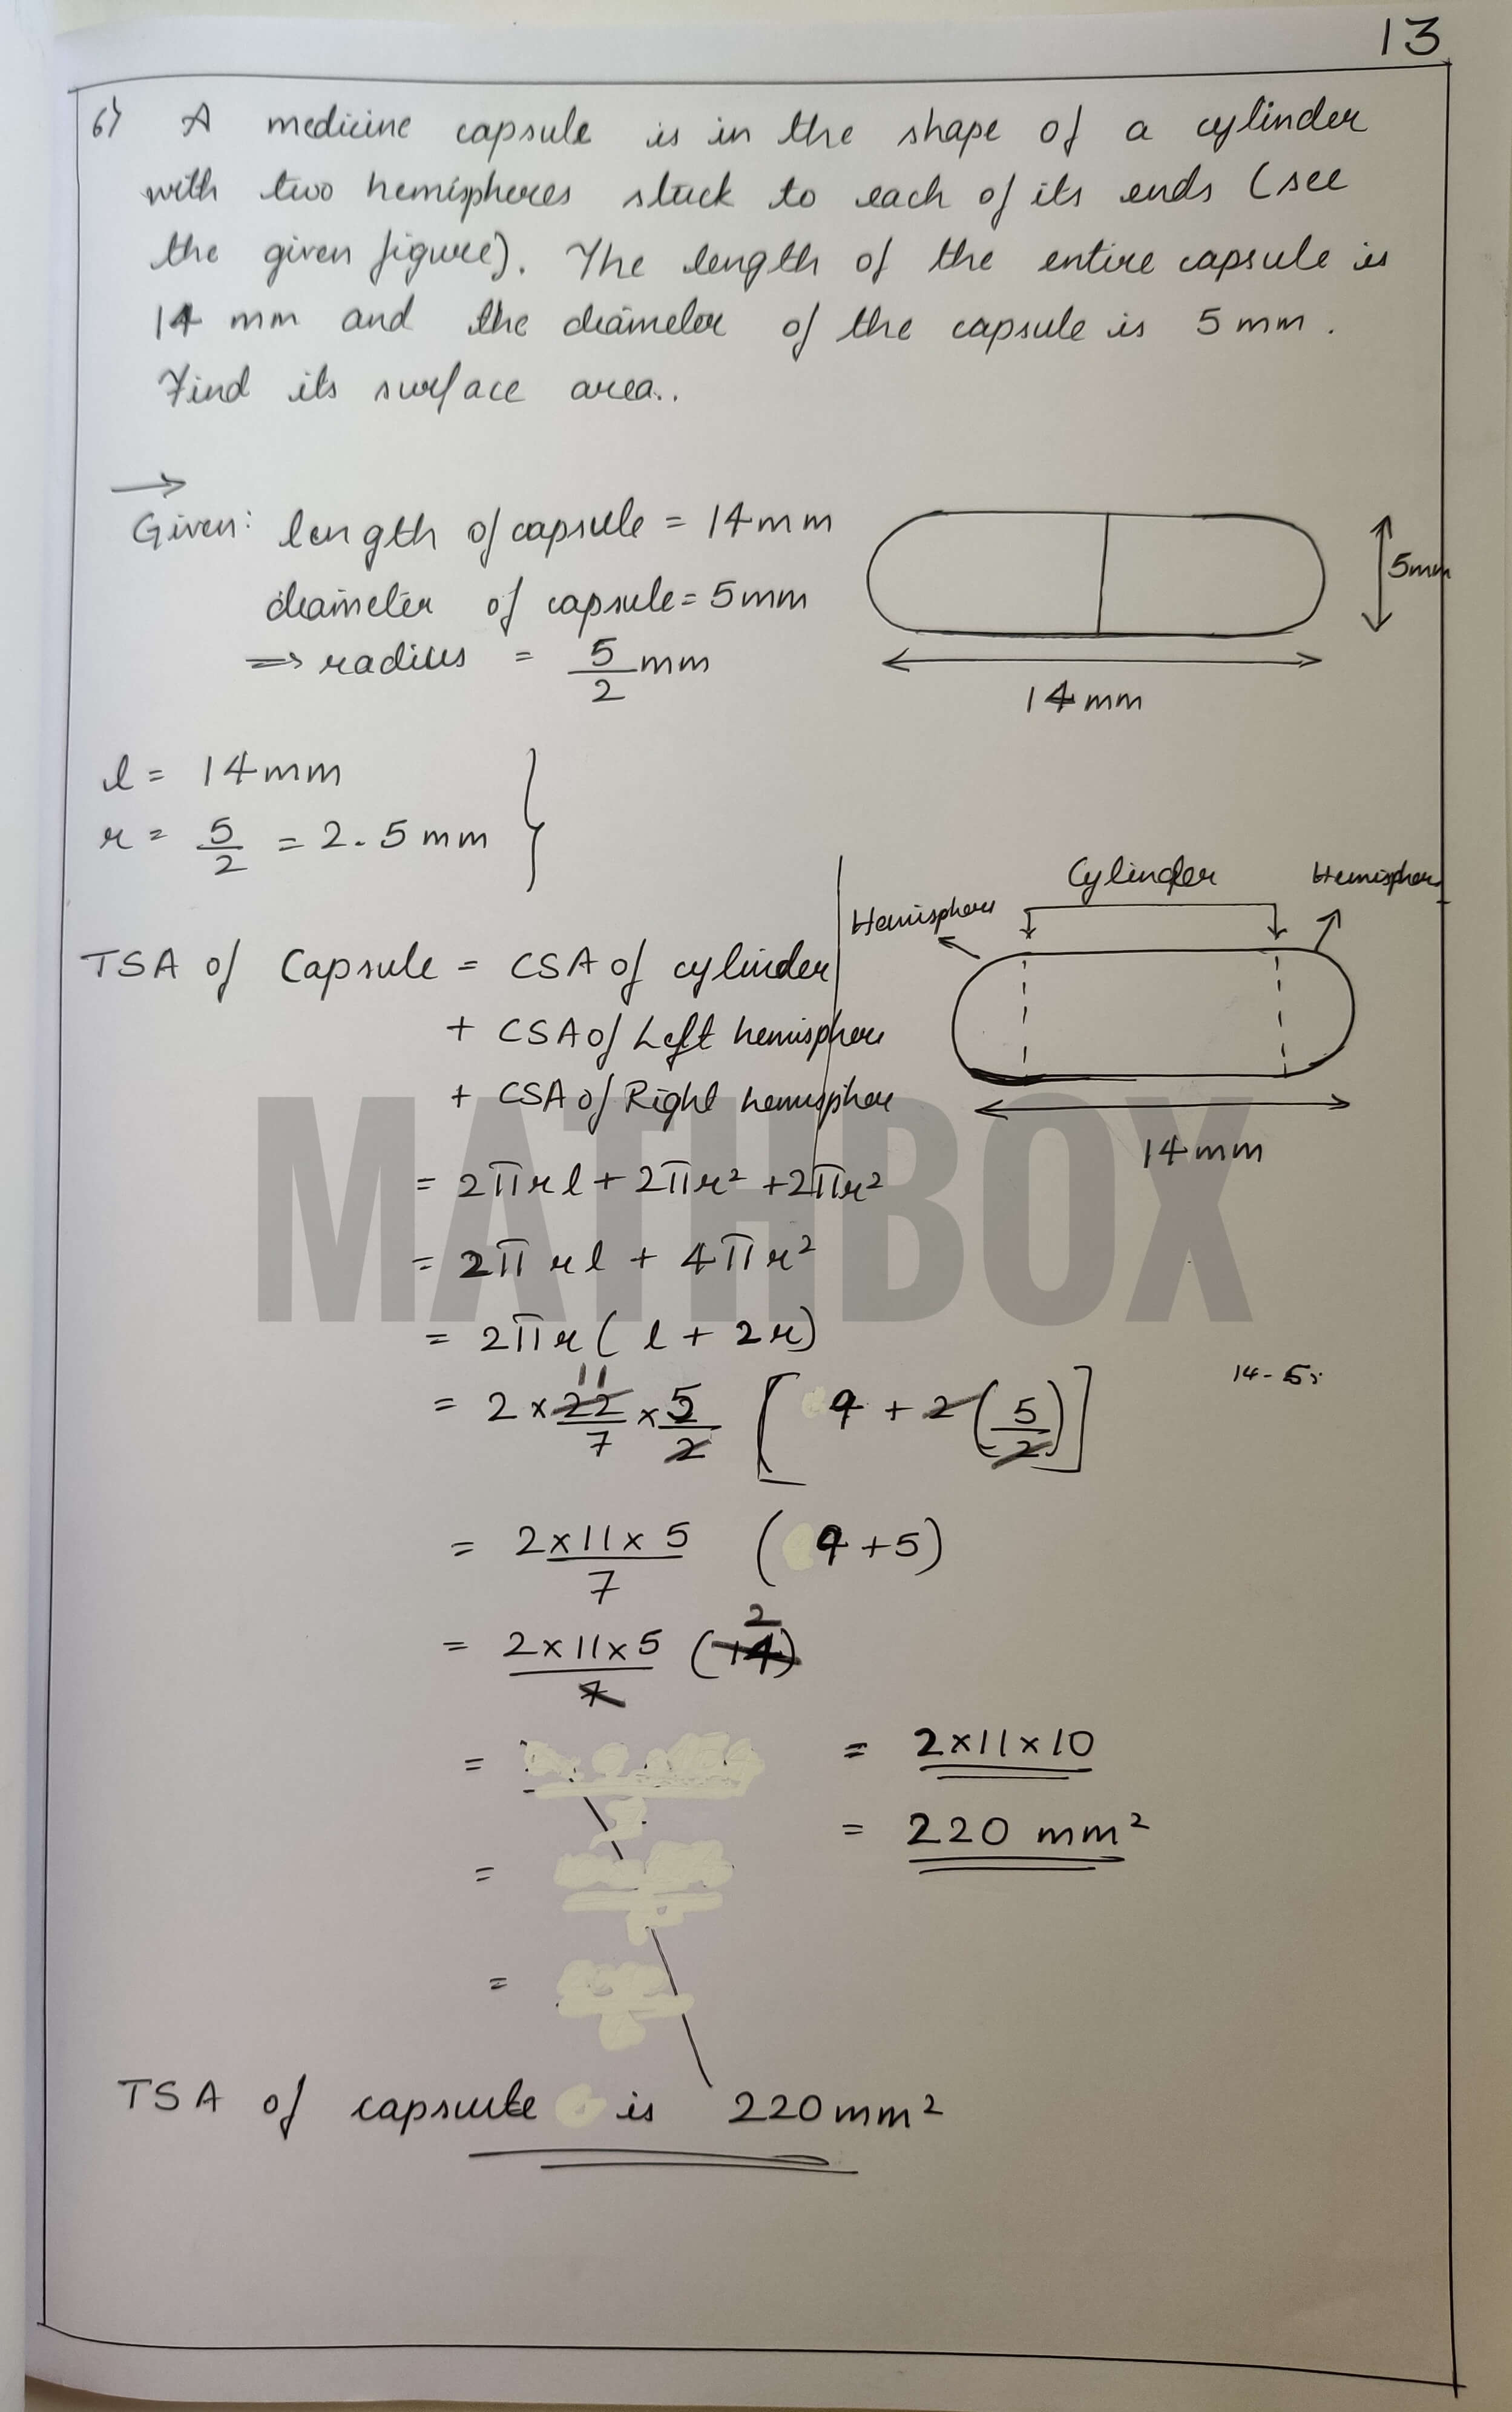 13
6) A medicine capsule is in the shape of a cylinder
with two hemispheres stuck to each of its ends (see
the given figure). The length of the entire capsule is
14 mm and the diameter of the capsule is 5 mm.
Find its surface area..
→
Given: length of capsule = 14 mm
diameter of capsule = 5 mm
⇒ radius = 5/2 mm
5mm
14 mm
l = 14 mm
r = 5/2 = 2.5 mm }
Cylinder
Hemisphere
Hemispher
14 mm
TSA of Capsule = CSA of cylinder
+ CSA of Left hemisphere
+ CSA of Right hemisphere
= 2πrl + 2πr² + 2πr²
= 2πrl + 4πr²
= 2πr ( l + 2r)
11
= 2 × 22/7 × 5/2 [ 9 + 2 (5/2) ]
14-5=
= 2×11×5/7 ( 9 + 5)
2
= 2×11×5/7 (14)
= 
= 2×11×10
= 
= 220 mm²
=
TSA of capsule is 220 mm²
MATHBOX